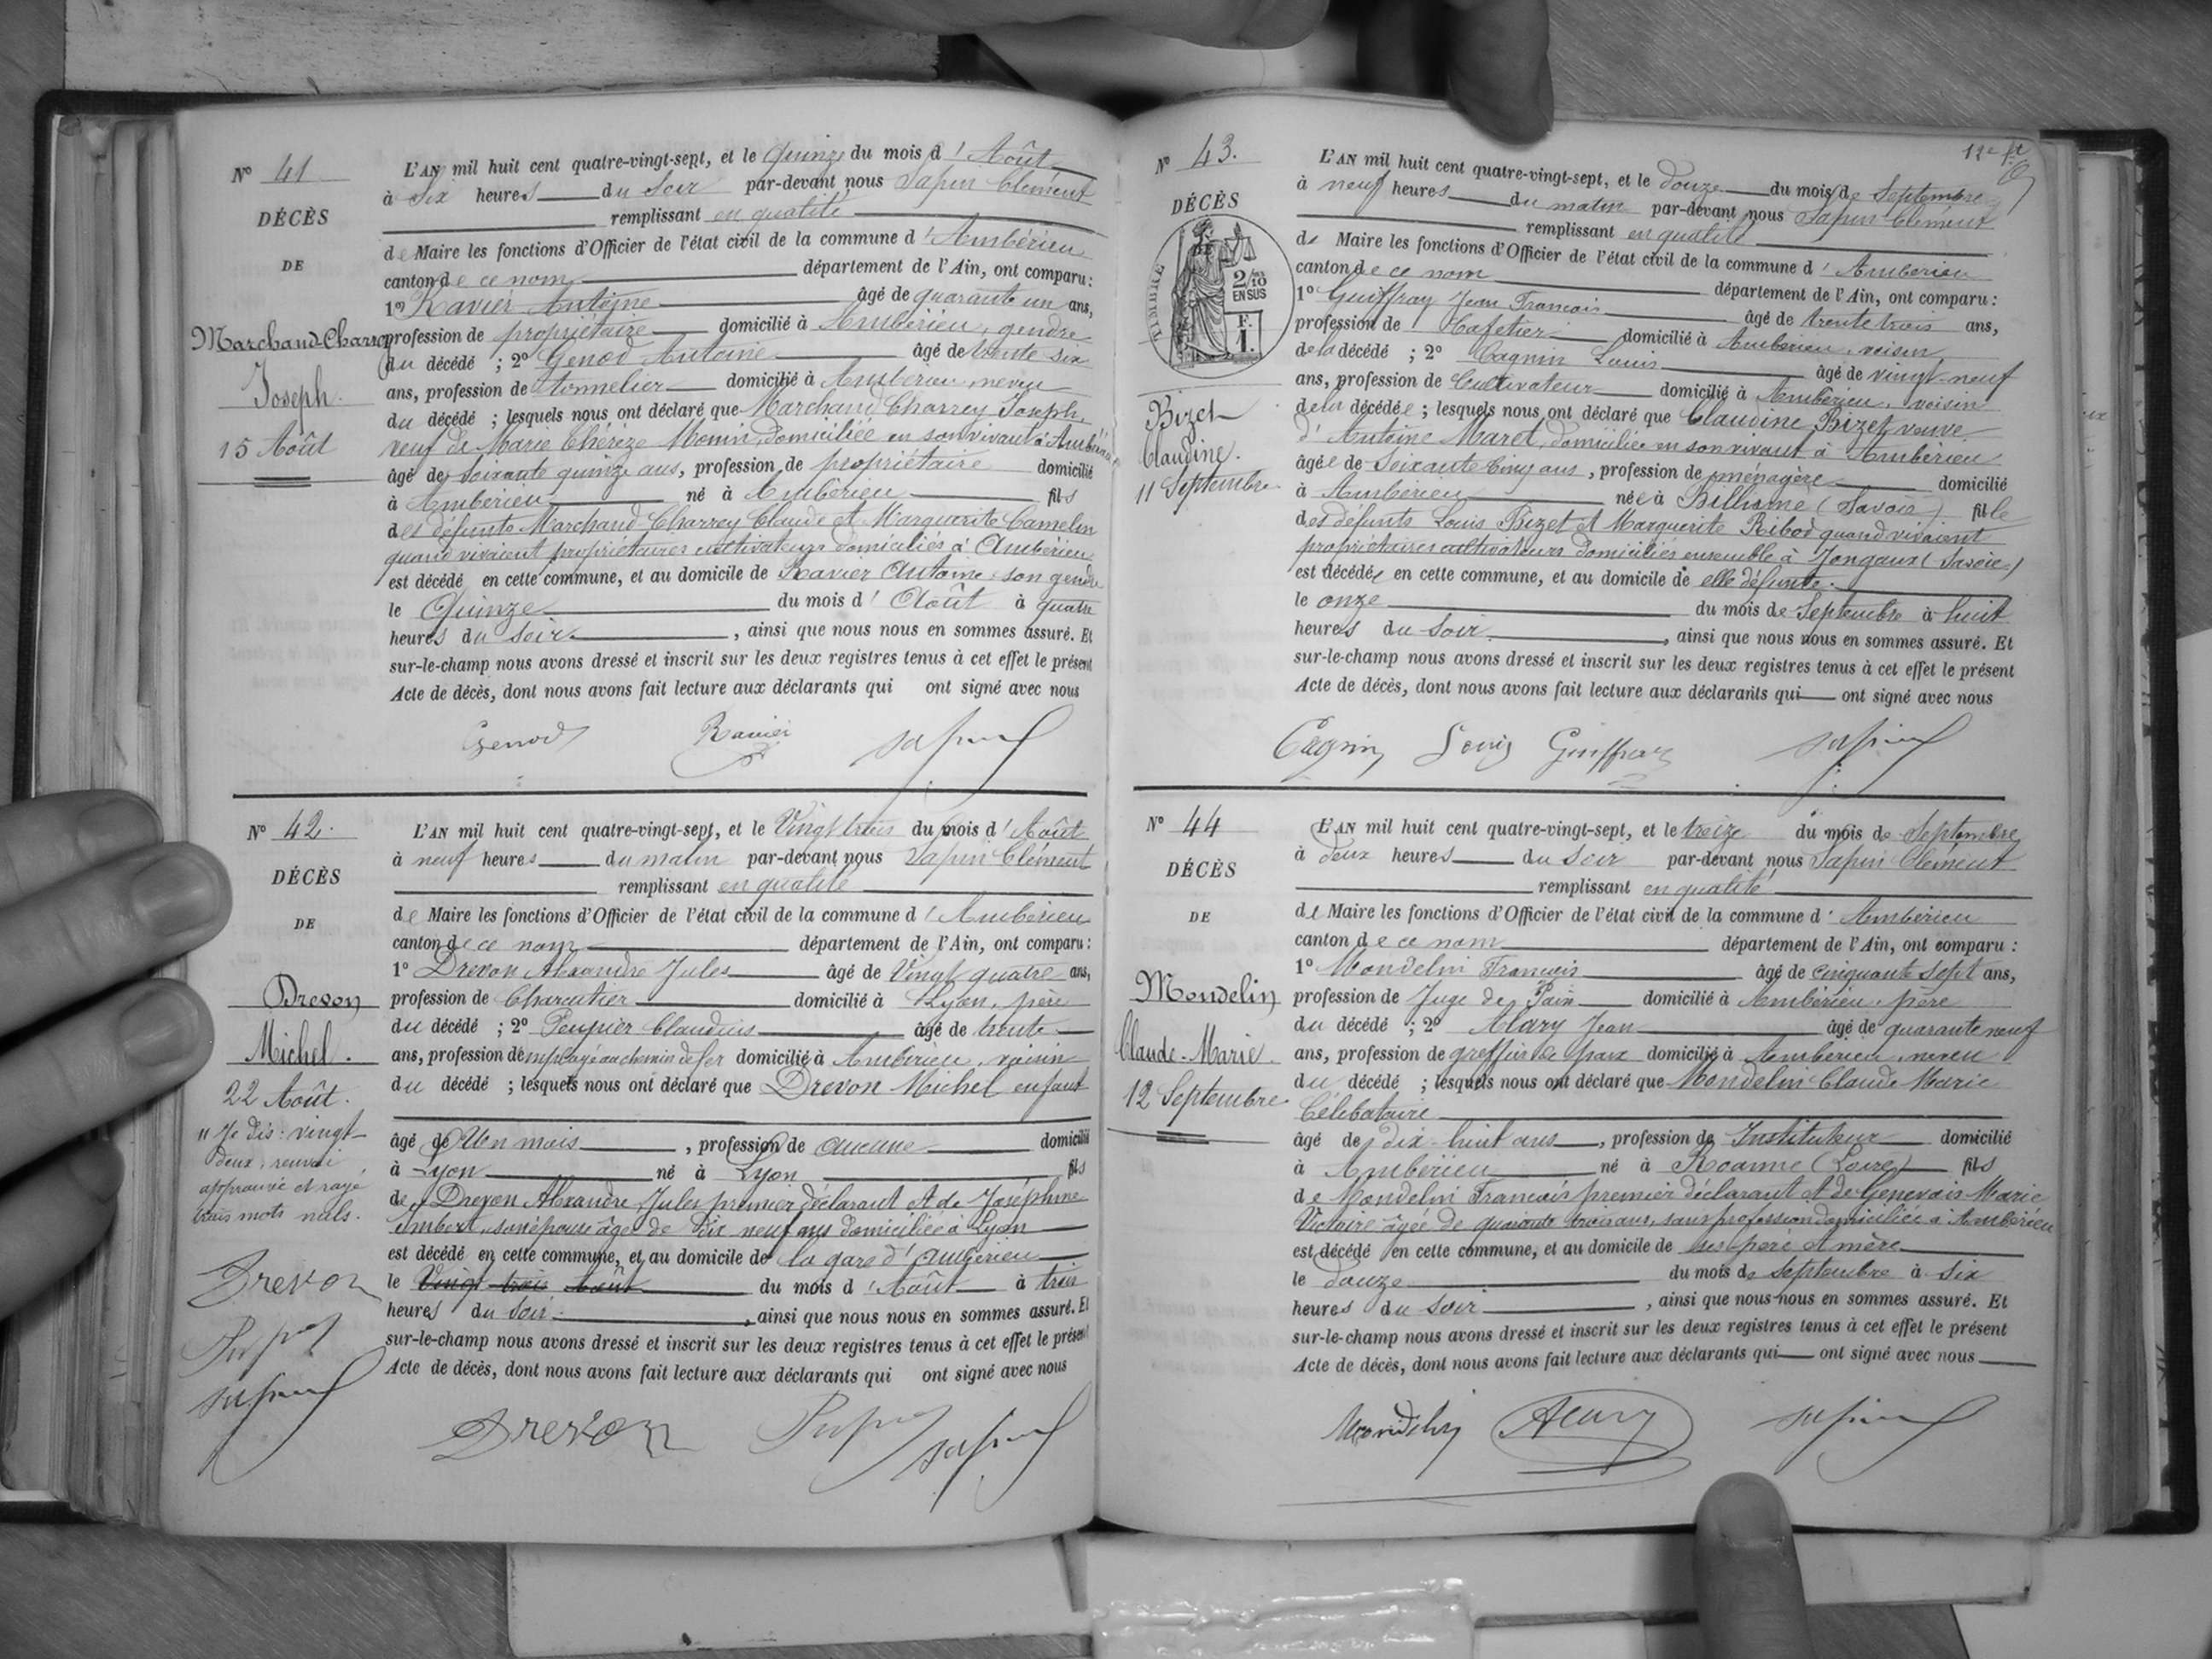 N° 41
DÉCÈS
DE
Marchand-Charrey
Joseph.
15 Août
L'AN mil huit cent quatre-vingt-sept, et le Quinze du mois d'Août
à Six heures du Soir par-devant nous Sapin Clément
remplissant en qualité
de Maire les fonctions d'Officier de l'état civil de la commune d'Ambérieu
canton de ce nom département de l'Ain, ont comparu :
1° Ravier Antoine âgé de quarante un ans,
profession de propriétaire domicilié à Ambérieu, gendre
du décédé ; 2° Genod Antoine âgé de trente six
ans, profession de tonnelier domicilié à Ambérieu neveu
du décédé ; lesquels nous ont déclaré que Marchand Charrey Joseph
veuf de Marie Thérèze Monin, domiciliée en son vivant à Ambérieu
âgé de soixante quinze ans, profession de propriétaire domicilié
à Ambérieu né à Ambérieu fils
des défunts Marchand-Charrey Claude et Marguerite Camelin
quand vivaient propriétaires cultivateurs domiciliés à Ambérieu
est décédé en cette commune, et au domicile de Ravier Antoine son gendre
le Quinze du mois d'Août à quatre
heures du Soir, ainsi que nous nous en sommes assuré. Et
sur-le-champ nous avons dressé et inscrit sur les deux registres tenus à cet effet le présent
Acte de décès, dont nous avons fait lecture aux déclarants qui ont signé avec nous
Genod Ravier Sapin
N° 42.
DÉCÈS
DE
Drevon
Michel.
22 Août.
" Je dis : vingt-
deux, renvoi
approuvé et rayé
trois mots nuls.
Drevon
Sapin
L'AN mil huit cent quatre-vingt-sept, et le Vingt trois du mois d'Août
à neuf heures du matin par-devant nous Sapin Clément
remplissant en qualité
de Maire les fonctions d'Officier de l'état civil de la commune d'Ambérieu
canton de ce nom département de l'Ain, ont comparu :
1° Drevon Alexandre Jules âgé de Vingt quatre ans,
profession de Charcutier domicilié à Lyon, père
du décédé ; 2° Claudius âgé de trente
ans, profession d'employé au chemin de fer domicilié à Ambérieu, voisin
du décédé ; lesquels nous ont déclaré que Drevon Michel enfant
âgé de Un mois, profession de aucune domicilié
à Lyon né à Lyon fils
de Drevon Alexandre Jules premier déclarant et de Joséphine
Imbert, son épouse âgée de Dix neuf ans domiciliée à Lyon
est décédé en cette commune, et au domicile de la gare d'Ambérieu
le Vingt trois Août du mois d'Août à trois
heures du Soir, ainsi que nous nous en sommes assuré. Et
sur-le-champ nous avons dressé et inscrit sur les deux registres tenus à cet effet le présent
Acte de décès, dont nous avons fait lecture aux déclarants qui ont signé avec nous
Drevon Sapin
12e
N° 43.
DÉCÈS
TIMBRE
2/10
EN SUS
F.
1.
Bizet
Claudine.
11 Septembre
L'AN mil huit cent quatre-vingt-sept, et le douze du mois de Septembre
à neuf heures du matin par-devant nous Sapin Clément
remplissant en qualité
de Maire les fonctions d'Officier de l'état civil de la commune d'Ambérieu
canton de ce nom département de l'Ain, ont comparu :
1° Guiffray Jean Francois âgé de trente trois ans,
profession de Cafetier domicilié à Ambérieu, voisin
de la décédé ; 2° Cagnin Louis âgé de vingt-neuf
ans, profession de Cultivateur domicilié à Ambérieu, voisin
de la décédée ; lesquels nous ont déclaré que Claudine Bizet veuve
d'Antoine Maret, domiciliée en son vivant à Ambérieu
âgée de Soixante Cinq ans, profession de ménagère domicilié
à Ambérieu née à Billième (Savoie) fille
des défunts Louis Bizet et Marguerite Ribod quand vivaient
propriétaires cultivateurs domiciliés ensemble à Jongaux (Savoie)
est décédée en cette commune, et au domicile de elle défunte.
le onze du mois de Septembre à huit
heures du Soir, ainsi que nous nous en sommes assuré. Et
sur-le-champ nous avons dressé et inscrit sur les deux registres tenus à cet effet le présent
Acte de décès, dont nous avons fait lecture aux déclarants qui ont signé avec nous
Cagnin Louis Guiffray Sapin
N° 44
DÉCÈS
DE
Mondelin
Claude-Marie.
12 Septembre
L'AN mil huit cent quatre-vingt-sept, et le treize du mois de Septembre
à deux heures du Soir par-devant nous Sapin Clément
remplissant en qualité
de Maire les fonctions d'Officier de l'état civil de la commune d'Ambérieu
canton de ce nom département de l'Ain, ont comparu :
1° Mondelin Francois âgé de cinquante sept ans,
profession de Juge de Paix domicilié à Ambérieu, père
du décédé ; 2° Alary Jean âgé de quarante neuf
ans, profession de greffier de paix domicilié à Ambérieu, neveu
du décédé ; lesquels nous ont déclaré que Mondelin Claude Marie
Célibataire
âgé de dix-huit ans, profession de Instituteur domicilié
à Ambérieu né à Roanne (Loire) fils
de Mondelin Francois premier déclarant et de Genevois Marie
Victoire âgée de quarante trois ans, sans profession domiciliée à Ambérieu
est décédé en cette commune, et au domicile de ses père et mère
le douze du mois de Septembre à six
heures du Soir, ainsi que nous nous en sommes assuré. Et
sur-le-champ nous avons dressé et inscrit sur les deux registres tenus à cet effet le présent
Acte de décès, dont nous avons fait lecture aux déclarants qui ont signé avec nous
Mondelin Alary Sapin